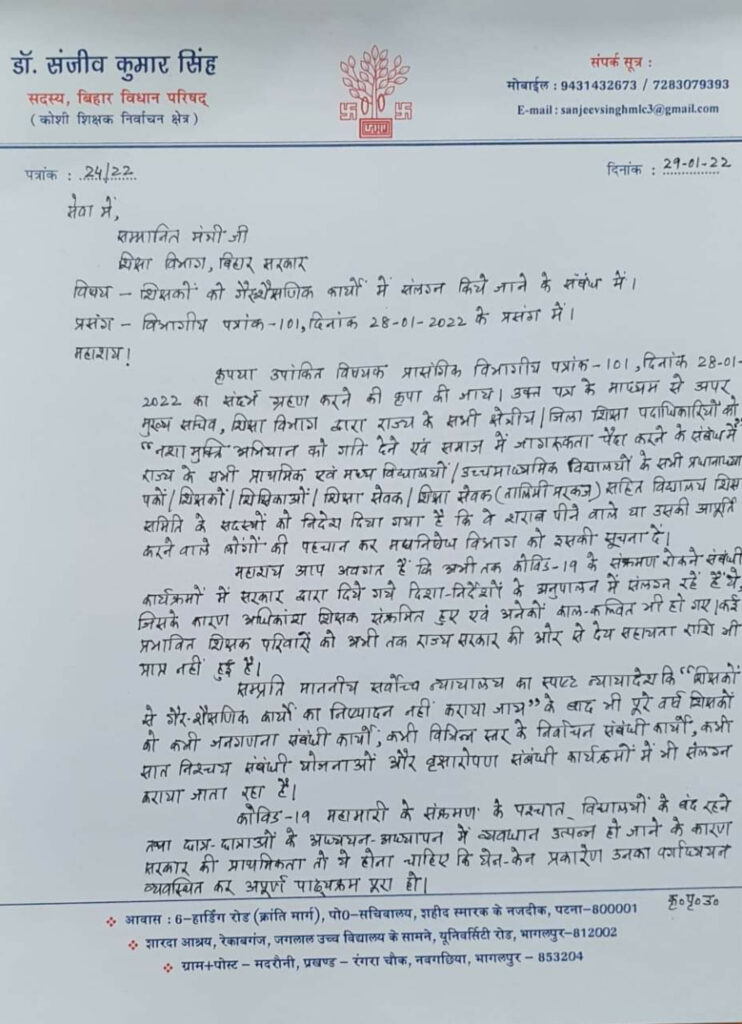 डॉ. संजीव कुमार सिंह
सदस्य, बिहार विधान परिषद्
( कोशी शिक्षक निर्वाचन क्षेत्र )
संपर्क सूत्र :
मोबाईल : 9431432673 / 7283079393
E-mail : sanjeevsinghmlc3@gmail.com
पत्रांक : 24/22
दिनांक : 29-01-22
सेवा में,
सम्मानित मंत्री जी
शिक्षा विभाग, बिहार सरकार
विषय – शिक्षकों को गैरशैक्षणिक कार्यों में संलग्न किये जाने के संबंध में।
प्रसंग – विभागीय पत्रांक-101, दिनांक 28-01-2022 के प्रसंग में।
महाशय!
कृपया उपांकित विषयक प्रासंगिक विभागीय पत्रांक-101, दिनांक 28-01-
2022 का संदर्भ ग्रहण करने की कृपा की जाय। उक्त पत्र के माध्यम से अपर
मुख्य सचिव, शिक्षा विभाग द्वारा राज्य के सभी क्षेत्रीय/जिला शिक्षा पदाधिकारियों को
“नशा मुक्ति अभियान को गति देने एवं समाज में जागरूकता पैदा करने के संबंध में
राज्य के सभी प्राथमिक एवं मध्य विद्यालयों/उच्चमाध्यमिक विद्यालयों के सभी प्रधानाध्या
पकों/शिक्षकों/शिक्षिकाओं/शिक्षा सेवक/शिक्षा सेवक(तालिमी मरकज़) सहित विद्यालय शिक्षा
समिति के सदस्यों को निदेश दिया गया है कि वे शराब पीने वाले या उसकी आपूर्ति
करने वाले लोंगों की पहचान कर मद्यनिषेध विभाग को इसकी सूचना दें।
महाशय आप अवगत हैं कि अभी तक कोविड-19 के संक्रमण रोकने संबंधी
कार्यक्रमों में सरकार द्वारा दिये गये दिशा-निर्देशों के अनुपालन में संलग्न रहें हैं थे,
जिसके कारण अधिकांश शिक्षक संक्रमित हुए एवं अनेकों काल-कल्वित भी हो गए। कई
प्रभावित शिक्षक परिवारों को अभी तक राज्य सरकार की ओर से देय सहायता राशि भी
प्राप्त नहीं हुई है।
सम्प्रति माननीय सर्वोच्च न्यायालय का स्पष्ट न्यायादेश कि “शिक्षकों
से गैर-शैक्षणिक कार्यों का निष्पादन नहीं कराया जाय” के बाद भी पूरे वर्ष शिक्षकों
को कभी जनगणना संबंधी कार्यों, कभी विभिन्न स्तर के निर्वाचन संबंधी कार्यों, कभी
सात निश्चय संबंधी योजनाओं और वृक्षारोपण संबंधी कार्यक्रमों में भी संलग्न
कराया जाता रहा है।
कोविड-19 महामारी के संक्रमण के पश्चात् विद्यालयों के बंद रहने
तथा छात्र-छात्राओं के अध्ययन-अध्यापन में व्यवधान उत्पन्न हो जाने के कारण
सरकार की प्राथमिकता तो ये होना चाहिए कि येन-केन प्रकारेण उनका
व्यवस्थित कर अपूर्ण पाठ्यक्रम पूरा हो।
कृ०पृ०उ०
आवास : 6-हार्डिंग रोड (क्रांति मार्ग), पो0-सचिवालय, शहीद स्मारक के नजदीक, पटना-800001
शारदा आश्रय, रेकाबगंज, जगलाल उच्च विद्यालय के सामने, यूनिवर्सिटी रोड, भागलपुर-812002
ग्राम+पोस्ट – मदरौनी, प्रखण्ड – रंगरा चौक, नवगछिया, भागलपुर – 853204